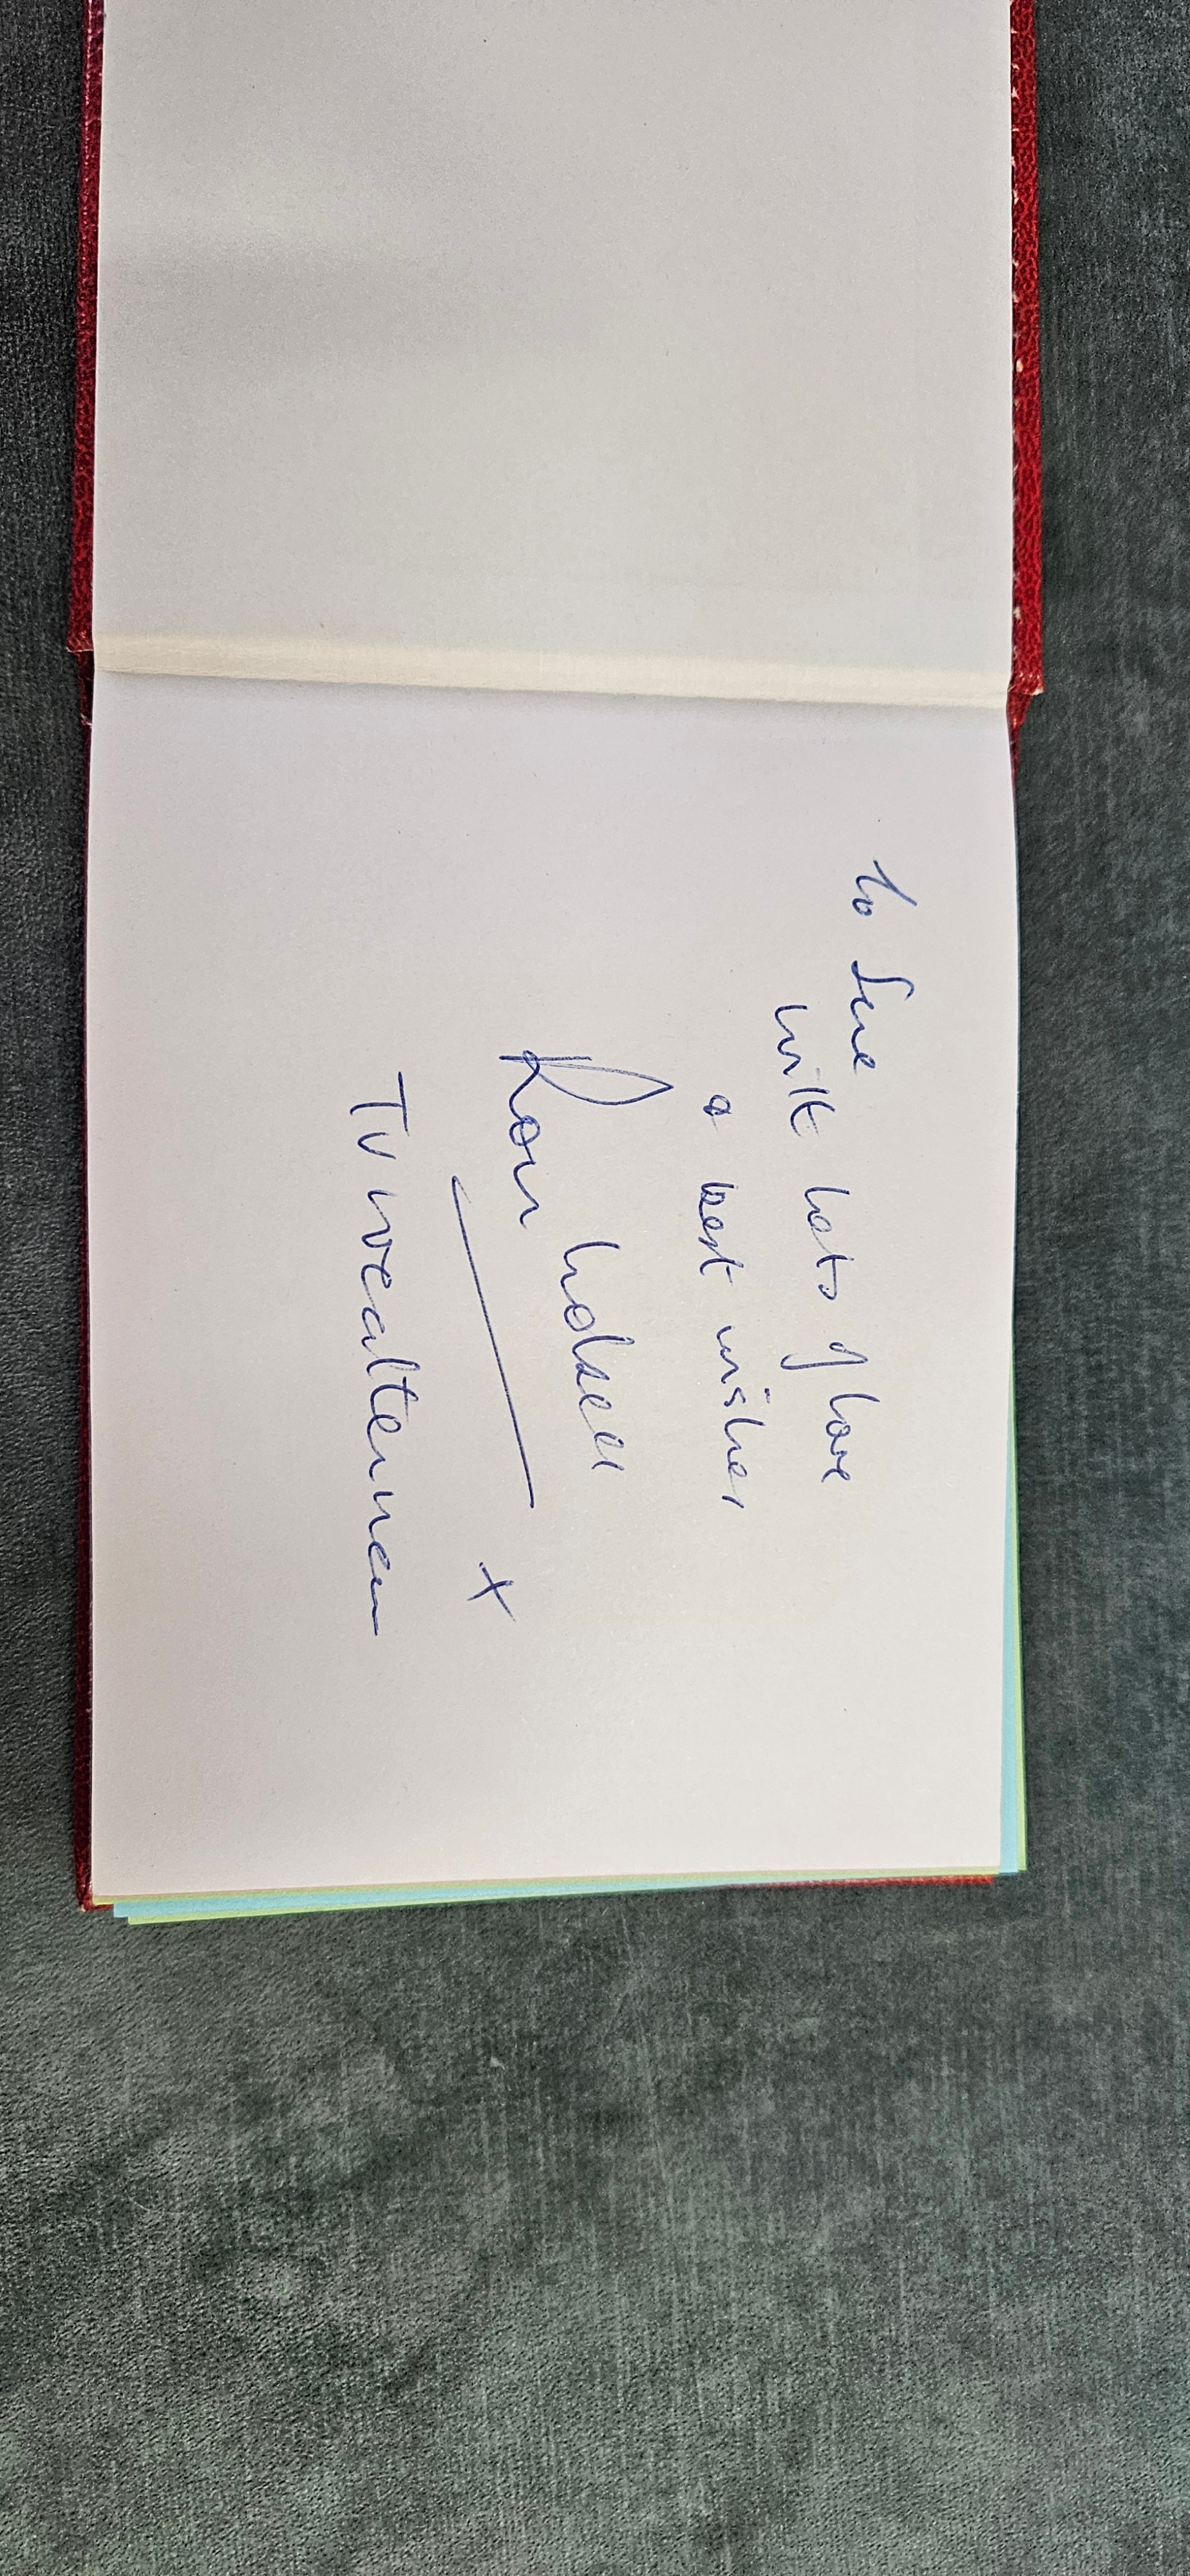 To Sue
with lots of love
& best wishes
Ron Lobeck
x
TV weatherman